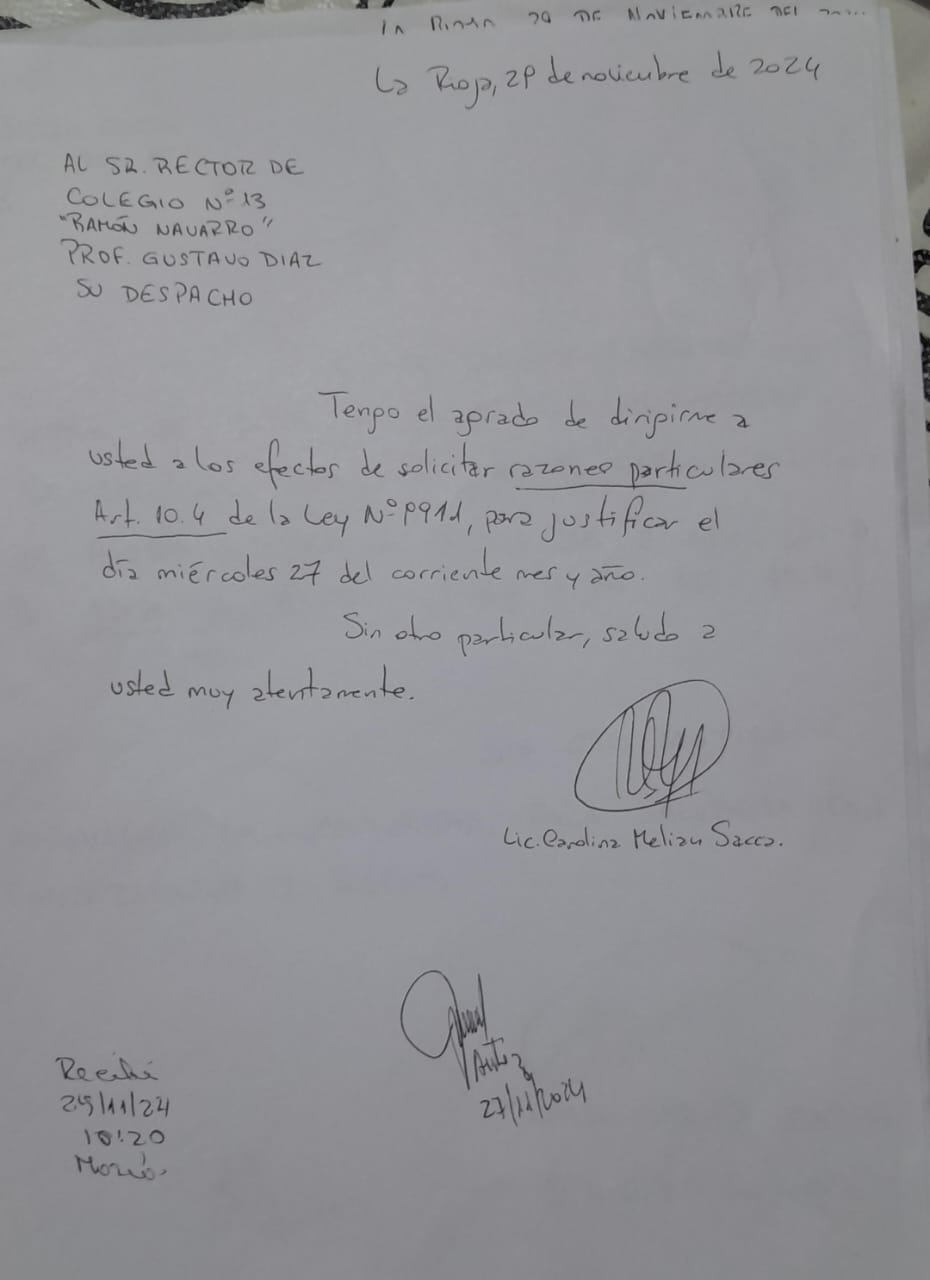 DE NOVIEMBRE DEL
La Rioja, 29 de noviembre de 2024
AL SR. RECTOR DE
COLEGIO Nº 13
"RAMÓN NAVARRO"
PROF. GUSTAVO DIAZ
SU DESPACHO
Tengo el agrado de dirigirme a
usted a los efectos de solicitar razones particulares
Art. 10.4 de la Ley Nº 9911, para justificar el
día miércoles 27 del corriente mes y año.
Sin otro particular, saludo a
usted muy atentamente.
Lic. Carolina Melian Sacca.
27/11/2024
Recibí
/11/24
10:20